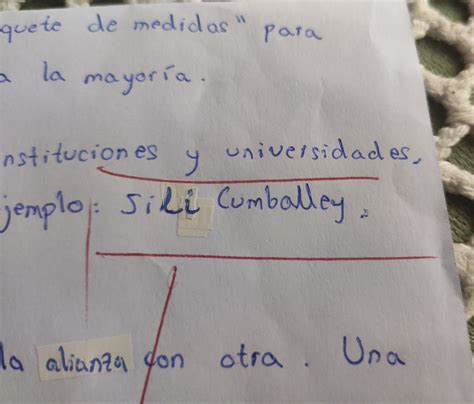 quete de medidas" para
a la mayoría.
nstituciones y universidades,
jemplo: Sili Cumballey,
la alianza con otra. Una